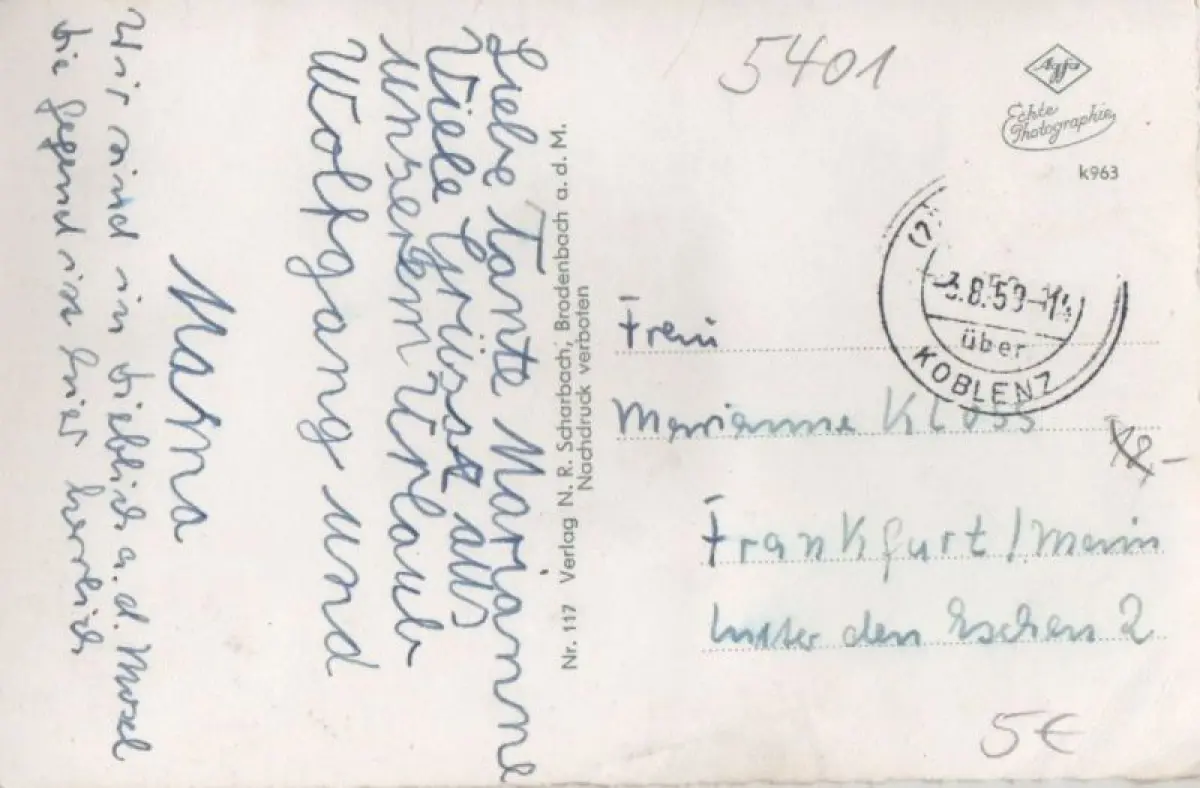 Liebe Tante Marianne
Viele Grüsse aus
unserem Urlaub
Wolfgang und
Mama
Wir sind in Dieblich a.d. Mosel
die Gegend ist hier herrlich
Nr. 117 Verlag N. R. Scharbach, Brodenbach a. d. M.
Nachdruck verboten
5401
Agfa
Echte
Photographie
k963
8.59-14
über
KOBLENZ
Frau
Marianne Kloss
12.-
Frankfurt/Main
Unter den Eschen 2
5€